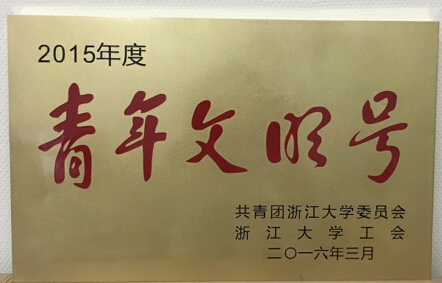 2015年度
青年文明号
共青团浙江大学委员会
浙江大学工会
二〇一六年三月